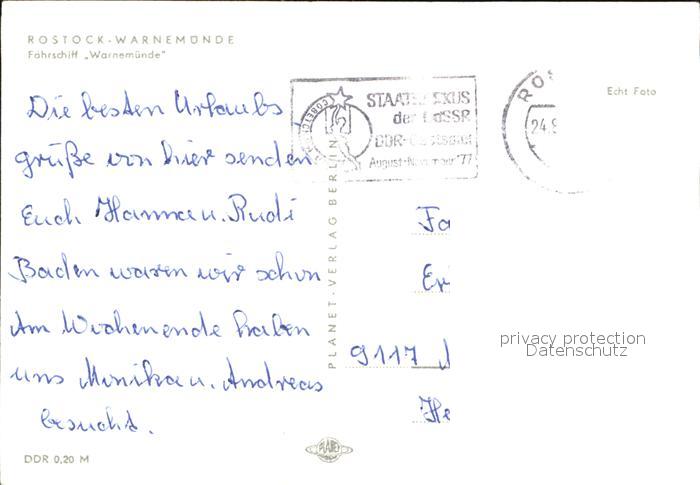 ROSTOCK-WARNEMÜNDE
Fährschiff „Warnemünde"
Echt Foto
Die besten Urlaubs
grüße von hier senden
Euch Hanna u. Rudi
Baden waren wir schon
Am Wochenende haben
uns Monika u. Andreas
besucht.
DDR 0,20 M
PLANET-VERLAG BERLIN
PLANET
STAATSZIRKUS
der UdSSR
DDR-Gastspiel
August-November '77
ROS
24.9
Fa
Er
9117
He
privacy protection
Datenschutz